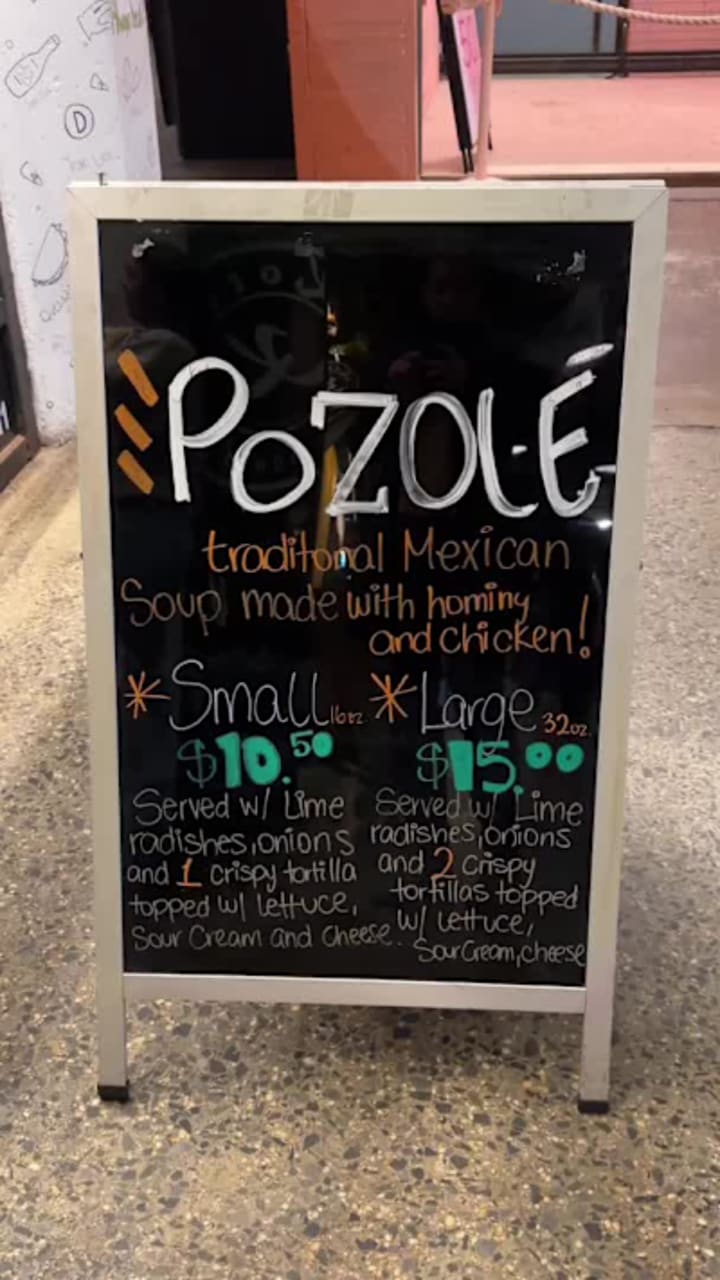 POZOLÉ
traditonal Mexican
Soup made with hominy
and chicken!
*Small 16oz. *Large 32oz.
$10.50 $15.00
Served w/ Lime
radishes, onions
and 1 crispy tortilla
topped w/ lettuce,
Sour Cream and cheese.
Served w/ Lime
radishes, onions
and 2 crispy
tortillas topped
w/ lettuce,
Sour Cream, cheese
D